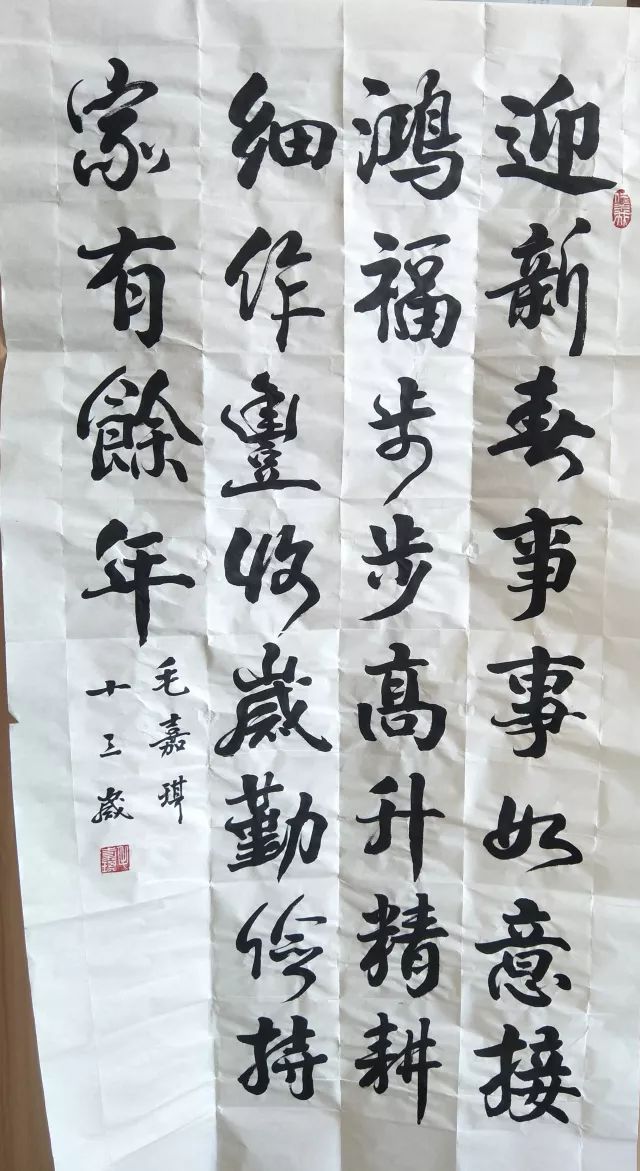 迎新春事事如意接
鴻福步步高升精耕
細作豊收歲勤儉持
家有餘年
毛嘉琪
十三歲